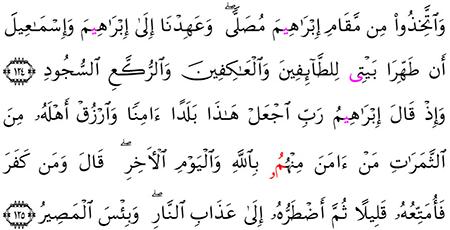 وَٱتَّخِذُواْ مِن مَّقَامِ إِبۡرَٰهِيمَ مُصَلّٗىۖ وَعَهِدۡنَا إِلَىٰ إِبۡرَٰهِيمَ وَإِسۡمَٰعِيلَ
أَن طَهِّرَا بَيۡتِي لِلطَّآئِفِينَ وَٱلۡعَٰكِفِينَ وَٱلرُّكَّعِ ٱلسُّجُودِ ١٢٤
وَإِذۡ قَالَ إِبۡرَٰهِيمُ رَبِّ ٱجۡعَلۡ هَٰذَا بَلَدًا ءَامِنٗا وَٱرۡزُقۡ أَهۡلَهُۥ مِنَ
ٱلثَّمَرَٰتِ مَنۡ ءَامَنَ مِنۡهُمُۥ بِٱللَّهِ وَٱلۡيَوۡمِ ٱلۡأٓخِرِۖ قَالَ وَمَن كَفَرَ
فَأُمَتِّعُهُۥ قَلِيلٗا ثُمَّ أَضۡطَرُّهُۥٓ إِلَىٰ عَذَابِ ٱلنَّارِۖ وَبِئۡسَ ٱلۡمَصِيرُ ١٢٥